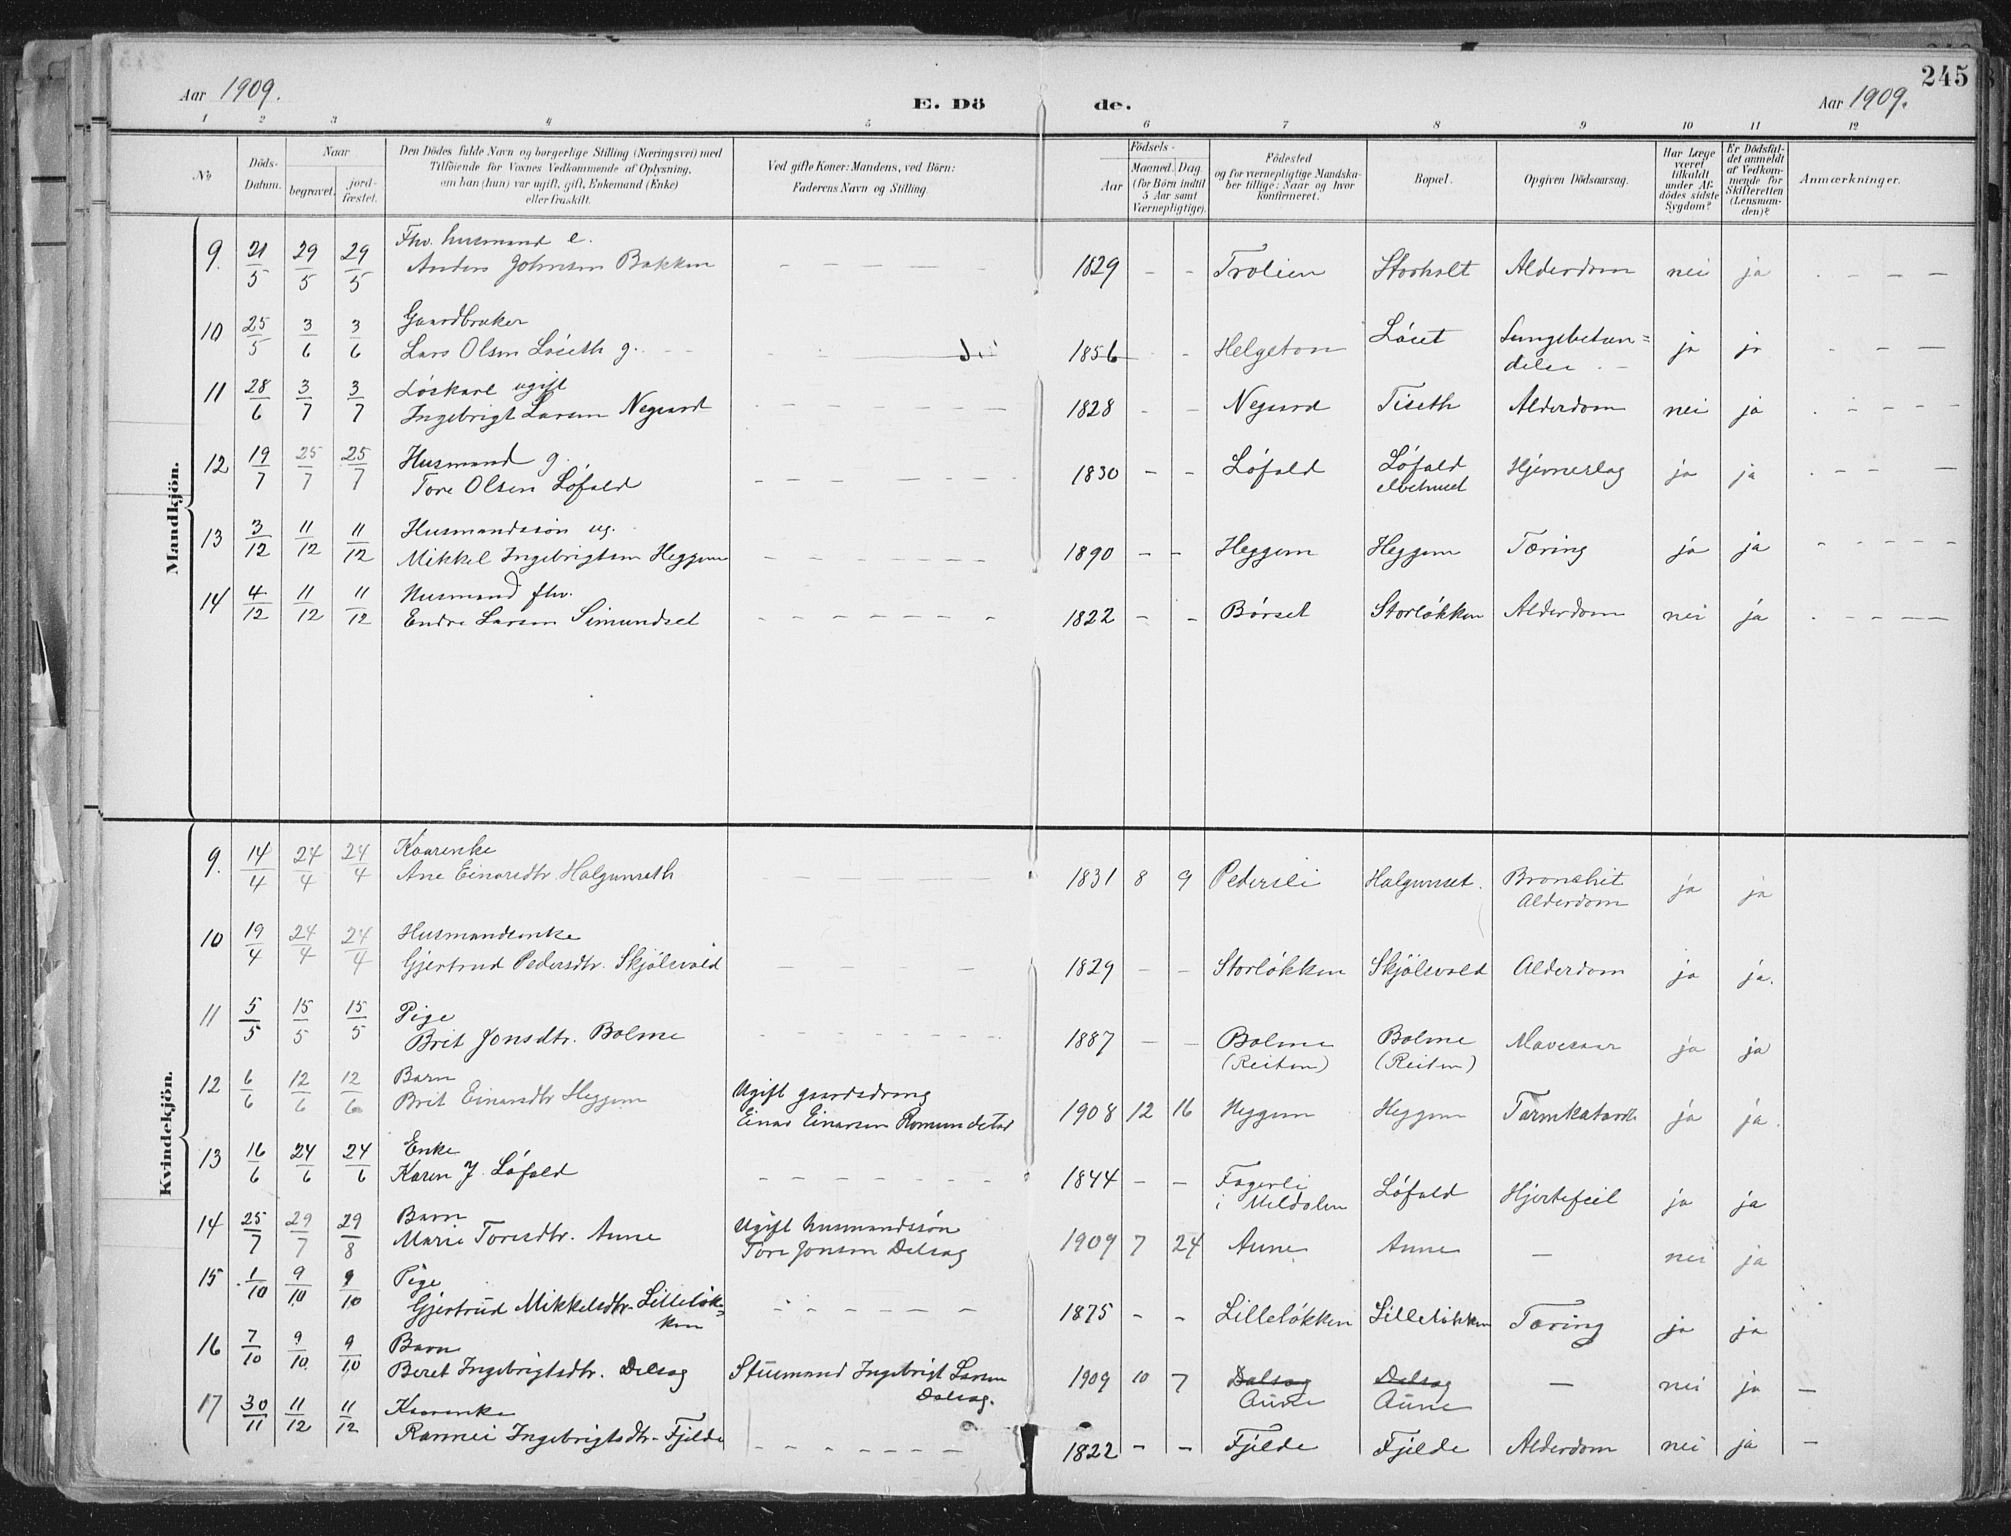 245
Aar 1909. E. Dö de. Aar 1909.
1 2 3 4 5 6 7 8 9 10 11 12
No Döds-Datum. Naar begravet. jord-fæstet. Den Dödes fulde Navn og borgerlige Stilling (Næringsvei) med Tilföiende for Voxnes Vedkommende af Oplysning, om han (hun) var ugift, gift, Enkemand (Enke) eller fraskilt. Ved gifte Koner: Mandens, ved Börn: Faderens Navn og Stilling. Födsels- Aar Maaned. Dag. (for Börn indtil 5 Aar samt Værnepligtige). Födested og for værnepligtige Mandskaber tillige: Naar og hvor Konfirmeret. Bopæl. Opgiven Dödsaarsag. Har Læge været tilkaldt under Afdödes sidste Sygdom? Er Dödsfaldet anmeldt af Vedkommende for Skifteretten (Lensmanden)? Anmærkninger.
Mandkjön.
9. 21/5 29/5 29/5 Fhv. husmand e.
Anders Johnsen Bakken - - - 1829 - - Trolien Storholt Alderdom nei ja - - - -
10 25/5 3/6 3/6 Gaardbruker
Lars Olsen Löseth g. 1856 - - Helgeton Löset Lungebetæn=
delse ja ja - - -
11 28/6 3/7 3/7 Löskarl ugift
Ingebrigt Larsen Negaard - - - 1828 - - Negard Tiseth Alderdom nei ja - - - -
12 19/7 25/7 25/7 Husmand g.
Tore Olsen Löfald - - - 1830 - - Löfald Löfald
Hjerneslag ja ja - - -
13 3/12 11/12 11/12 Husmandssön ug.
Mikkel Ingebrigtsen Heggem - - - 1890 - - Heggem Heggem Tæring ja ja - - - -
14 4/12 11/12 11/12 Husmand fhv.
Endre Larsen Simundset - - - 1822 - - Börset Storlökken Alderdom nei ja - - - -
Kvindekjön.
9. 14/4 24/4 24/4 Kaarenke
Ane Einarsdtr Halgunseth - - - 1831 8 9 Pedersli Halgunset. Bronchit
Alderdom ja ja
10 19/4 24/4 24/4 Husmandsenke
Gjertrud Pedersdtr. Skjölsvold - - - 1829 - - Storlökken Skjölsvold Alderdom ja ja.
11 5/5 15/5 15/5 Pige
Brit Jonsdtr. Bolme - - - 1887 - - Bolme Bolme Mavesaar ja ja
(Reiten) (Reiten)
12 6/6 12/6 12/6 Barn
Brit Einarsdtr Heggem Ugift gaardsdreng
Einar Einarsen Romundstad 1908 12 16 Heggem Heggem Tarmkatarrh ja ja.
13 16/6 24/6 24/6 Enke
Karen J. Löfald - - - 1844 - - Fagerli
i Meldalen Löfald Hjertefeil ja ja
14 25/7 29/7 29/8 Barn
Marie Toresdtr. Aune Ugift husmandssön
Tore Jonsen Dalsag 1909 7 24 Aune Aune - nei ja
15 1/10 9/10 9/10 Pige
Gjertrud Mikkelsdtr. Lillelök=
ken - - - 1875 - - Lillelökken Lillelökken Tæring ja ja
16 7/10 9/10 9/10 Barn
Beret Ingebrigtsdtr. Dalsag Stuemand Ingebrigt Larsen
Dalsag. 1909 10 7 Dalsag Dalsag - nei ja -
Aune Aune
17 30/11 11/12 11/12 Kaarenke
Rannei Ingebrigtsdtr. Fjelde - - - 1822 - - Fjelde Fjelde Alderdom nei ja -